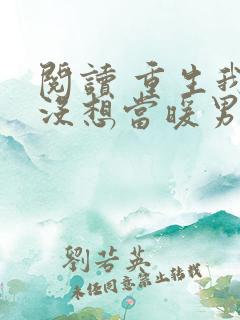 閱讀 重生我
沒想當暖男
劉若英
未經同意禁止轉載